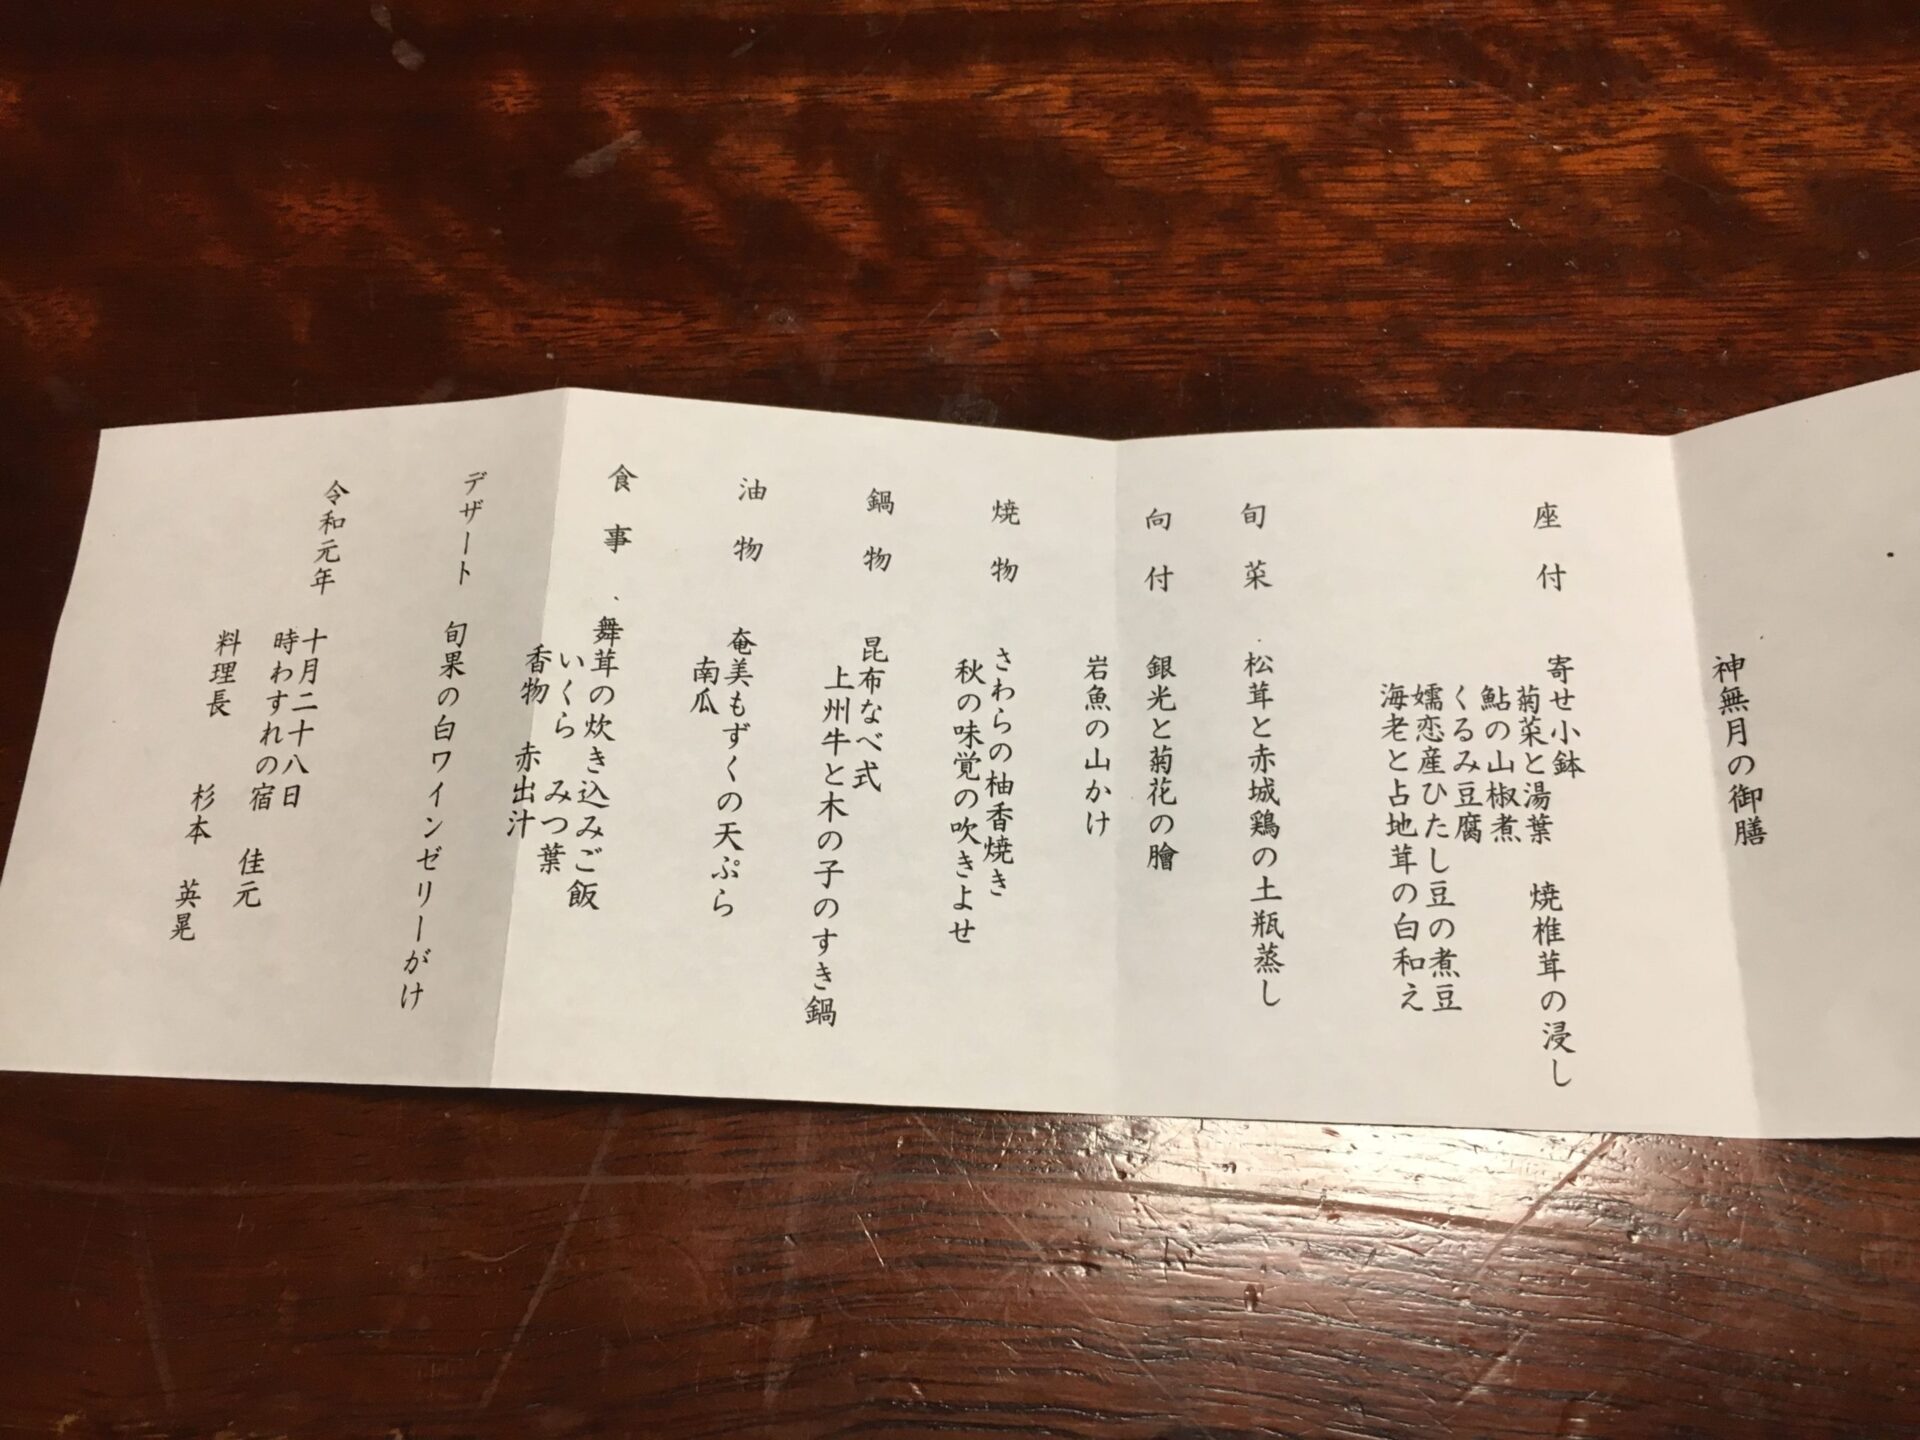 神無月の御膳
座付 寄せ小鉢 焼椎茸の浸し
菊菜と湯葉
鮎の山椒煮
くるみ豆腐
嬬恋産ひたし豆の煮豆
海老と占地茸の白和え
旬菜 松茸と赤城鶏の土瓶蒸し
向付 銀光と菊花の膾
岩魚の山かけ
焼物 さわらの柚香焼き
秋の味覚の吹きよせ
鍋物 昆布なべ式
上州牛と木の子のすき鍋
油物 奄美もずくの天ぷら
南瓜
食事 舞茸の炊き込みご飯
いくら みつ葉
香物 赤出汁
デザート 旬果の白ワインゼリーがけ
令和元年 十月二十八日
時わすれの宿 佳元
料理長 杉本 英晃